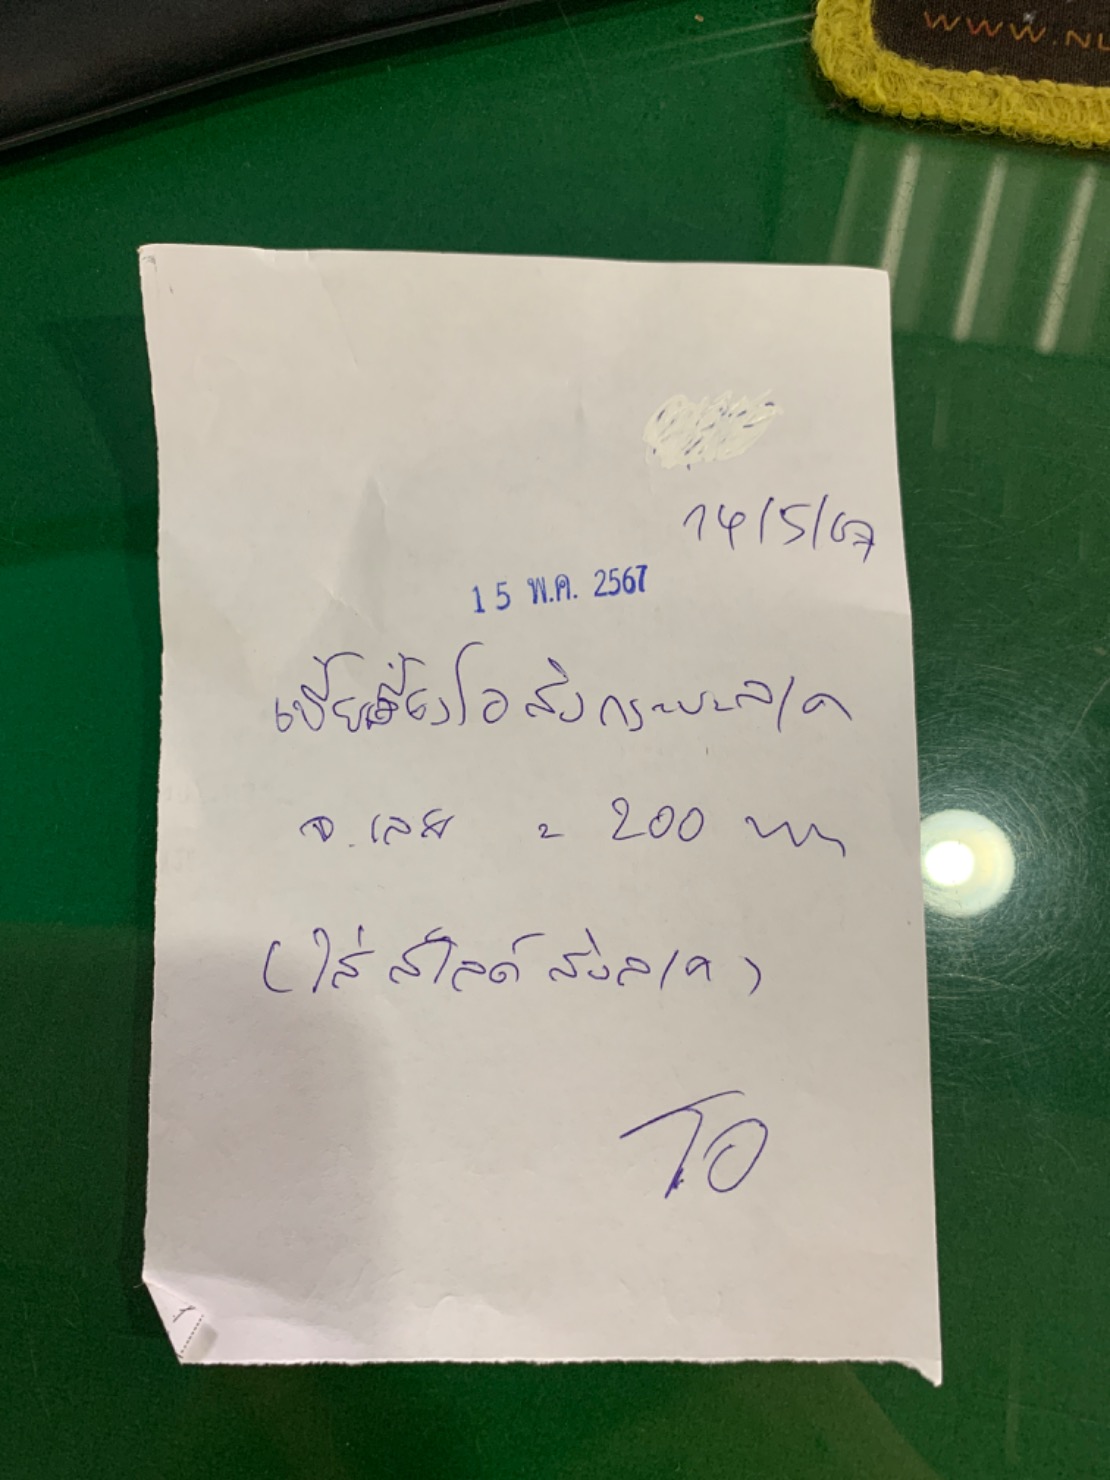 WWW.NU
14/5/67
15 พ.ค. 2567
เบี้ยเลี้ยงโอ ส่งกระบะล/ค
จ.เลย = 200 บาท
(ใส่สไลด์ ส่งล/ค)
โอ